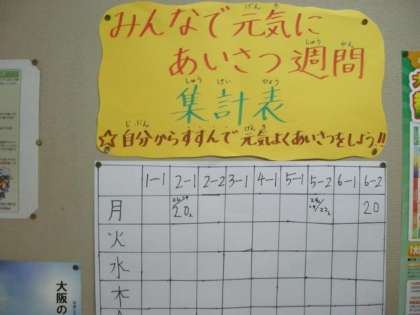 みんなで元気に
あいさつ週間
集計表
☆自分からすすんで元気よくあいさつをしよう!!
1-1 2-1 2-2 3-1 4-1 5-1 5-2 6-1 6-2
月 20 20
火
水
木
大阪の